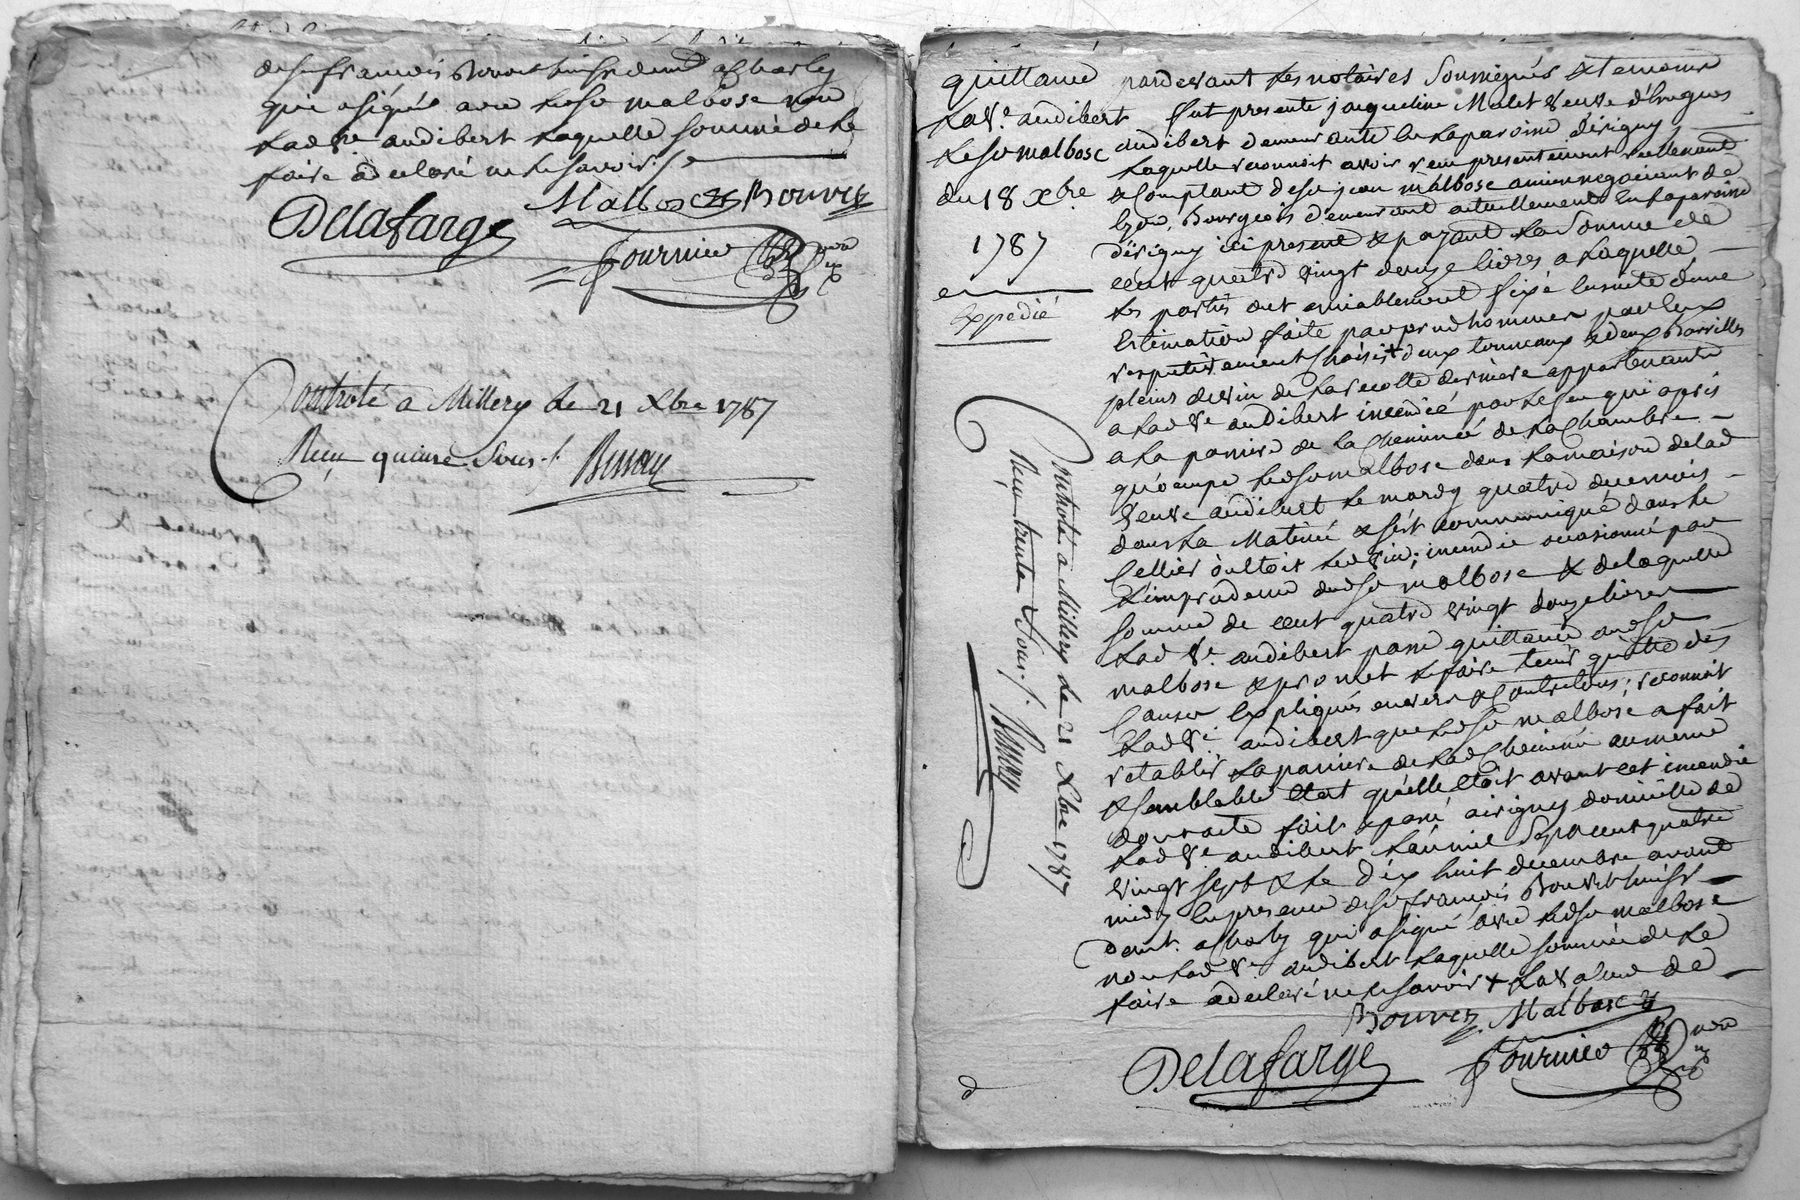 de sr françois Bonvet huissr demt a Charly
qui a signé avec ledsr malbosc non
lade ve audibert laquelle sommée de le
faire a declaré ne le savoir ./.
Malbosc Bouvet
Delafarge
fournier
Controlé a Millery le 21 Xbre 1787
Reçu quinze sous ./.
quittance
lad ve audibert
led sr malbosc
du 18 Xbre
1787
Expedié
Controlé a Millery le 21 Xbre 1787
Reçu trente sous ./.
pardevant les notaires soussignés & temoins
fut presente jacqueline Malet veuve d'hugues
audibert demeurante en la paroisse d'irigny
laquelle reconnoit avoir reçu presentement reellement
& comptant de sr jean malbosc ancien negociant de
lyon, Bourgeois demeurant actuellement en la paroisse
d'irigny ici present & payant la somme de
cent quatre vingt douze livres a laquelle
les parties ont amiablement fixé ensuite d'une
estimation faite par prudhommes par eux
respectivement choisis + deux tonneaux & deux Barrilles
pleins de vin de la recolte derniere appartenants
a lad ve audibert incendié par le feu qui a pris
a la paniere de la Cheminée de la Chambre
qu'occupe ledsr malbosc dans la maison de lad
veuve audibert le mardy quatre du mois
dans la Matinée & s'est communiqué dans le
Cellier où etoit led vin; incendie occasionné par
l'imprudence dudsr malbosc & de laquelle
somme de cent quatre vingt douze livres
lad ve audibert passe quittance audsr
malbosc & promet le faire tenir quitte des
Causes expliquées envers & Contre tous; reconnoit
lad ve audibert que ledsr malbosc a fait
retablir la paniere de lad Cheminée au meme
& semblable etat qu'elle etoit avant cet incendie
dont acte fait & passé a irigny domicille de
lad ve audibert l'an mil sept cent quatre
vingt sept & le dix huit decembre avant
midy en presence de sr françois Bouvet huissr
demt a Charly qui a signé avec ledsr malbosc
non lad ve audibert laquelle sommée de le
faire a declaré ne le savoir + la valeur de
Bouvet Malbosc
Delafarge fournier